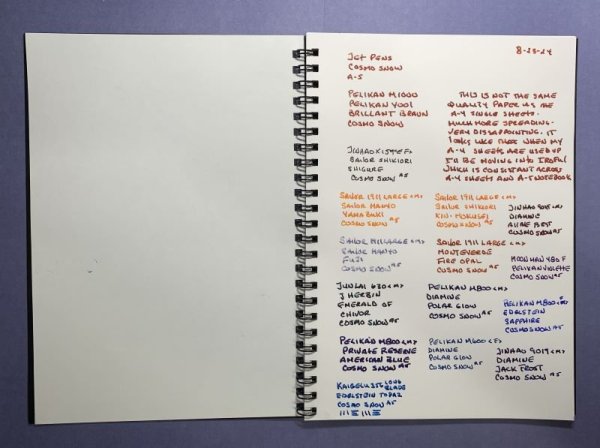 8-23-24
JET PENS
COSMO SNOW
A-5
PELIKAN M1000
PELIKAN 4001
BRILLANT BRAUN
COSMO SNOW
THIS IS NOT THE SAME
QUALITY PAPER AS THE
A-4 SINGLE SHEETS.
MUCH MORE SPREADING.
VERY DISSAPOINTING. IT
LOOKS LIKE THAT WHEN MY
A-4 SHEETS ARE USED UP
I'LL BE MOVING INTO
WHICH IS CONSISTANT ACROSS
A-4 SHEETS AND A-5 NOTEBOOK
JINHAO X159 <EF>
SAILOR SHIKIORI
SHIGURE
COSMO SNOW A5
SAILOR 1911 LARGE <M>
SAILOR MANYO
YAMABUKI
COSMO SNOW A5
SAILOR 1911 LARGE <M>
SAILOR SHIKIORI
KIN-MOKUSEI
COSMO SNOW A5
JINHAO 9019 <M>
DIAMINE
COSMO SNOW A5
SAILOR 1911 LARGE <M>
SAILOR MANYO
FUJI
COSMO SNOW A5
SAILOR 1911 LARGE <M>
MONTEVERDE
FIRE OPAL
COSMO SNOW A5
MOONMAN F
PELIKAN VIOLETTE
COSMO SNOW A5
JUNLAI 630 <M>
J HERBIN
EMERALD OF
CHIVOR
COSMO SNOW A5
PELIKAN M800 <M>
DIAMINE
POLAR GLOW
COSMO SNOW A5
PELIKAN M800
EDELSTEIN
SAPPHIRE
COSMO SNOW A5
PELIKAN M800 <M>
PRIVATE RESERVE
AMERICAN BLUE
COSMO SNOW A5
PELIKAN M600 <F>
DIAMINE
POLAR GLOW
COSMO SNOW A5
JINHAO 9019 <M>
DIAMINE
JACK FROST
COSMO SNOW A5
KAIGELU 356 LONG
BLADE
EDELSTEIN TOPAZ
COSMO SNOW A5